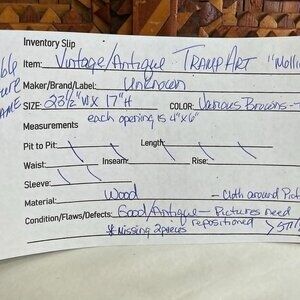 Inventory Slip
Item: Vintage/Antique TRAMP ART
Maker/Brand/Label: Unknown
SIZE: 23½"W X 17"H COLOR: Various Browns -
Measurements each opening is 4"x6"
Pit to Pit: Length:
Waist: Inseam: Rise:
Sleeve:
Material: Wood - Cloth around
Condition/Flaws/Defects: Good/Antique - Pictures need
* Missing 2 pieces repositioned